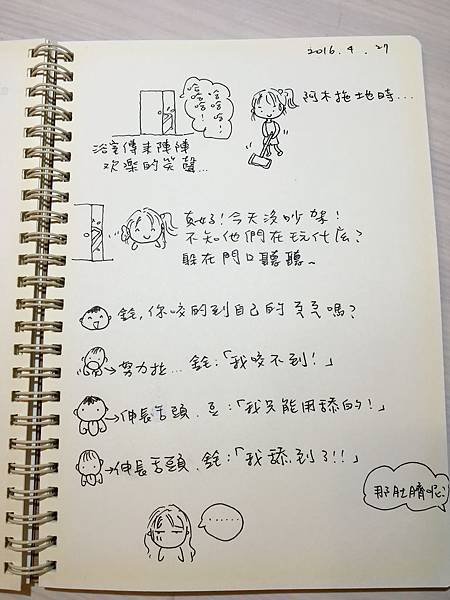 2016.4.27
哈哈哈哈!哈哈!
阿木拖地時...
浴室傳來陣陣
歡樂的笑聲...
真好!今天沒吵架!
不知他們在玩什麼?
躲在門口聽聽~
銓,你咬的到自己的ㄋㄋ嗎?
→努力拉...銓:「我咬不到!」
→伸長舌頭.亘:「我只能用舔的!」
→伸長舌頭.銓:「我舔到了!!」
那肚臍呢?
......